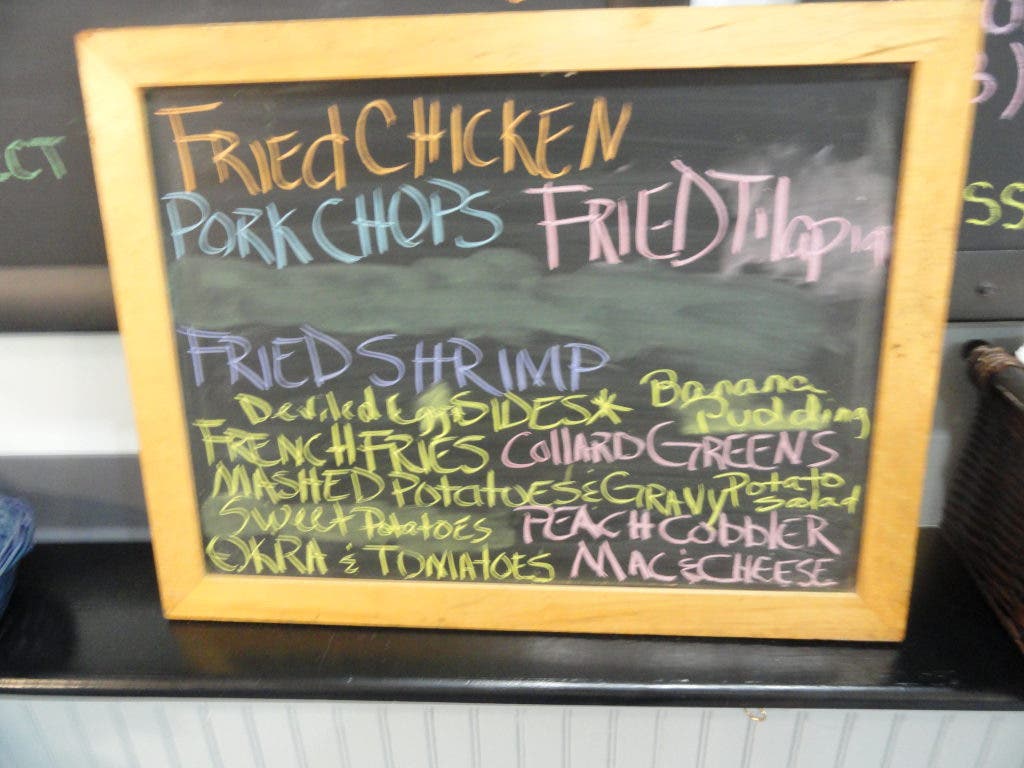 FRied CHICKEN
PORK CHOPS FRIED Tilapia
FRIED SHRIMP
Deviled Eggs SIDES* Banana
Pudding
FRENCH FRIES COLLARD GREENS
MASHED POTATOES & GRAVY Potato
Salad
Sweet Potatoes PEACH CObblER
OKRA & TOMATOES MAC & CHEESE